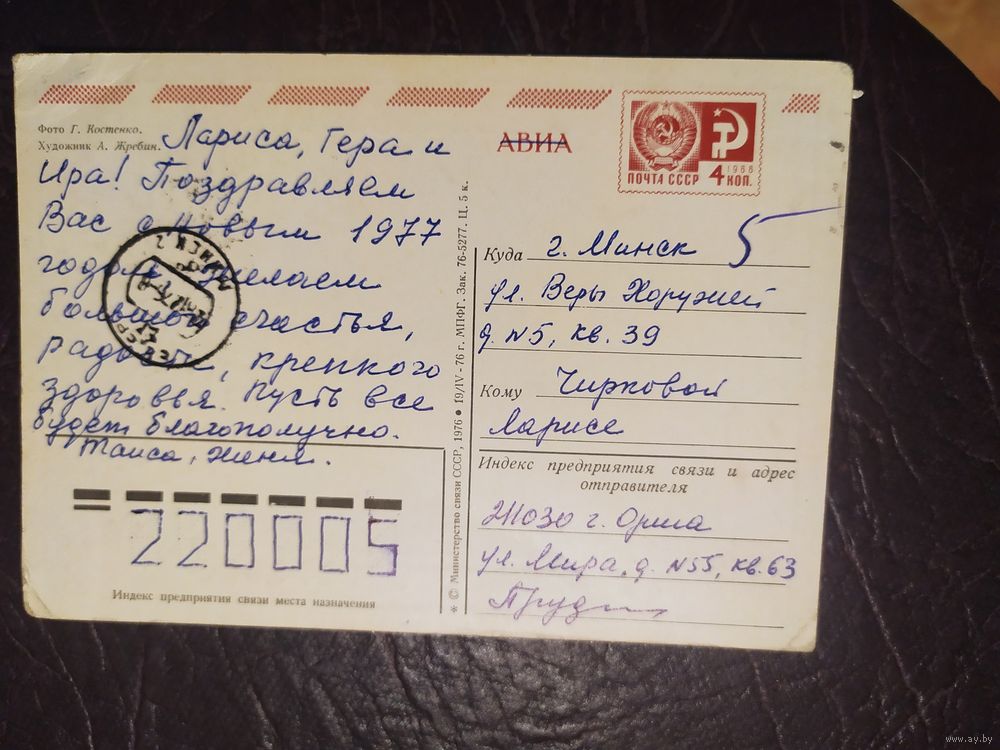 Фото Г. Костенко.
Художник А. Жребин.
Лариса, Гера и
Ира! Поздравляем
Вас с Новым 1977
годом, желаем
большого счастья,
радости, крепкого
здоровья. Пусть все
будет благополучно.
Таиса, Женя.
220005
Индекс предприятия связи места назначения
* © Министерство связи СССР, 1976 • 19/IV-76 г. МПФГ. Зак. 76-5277. Ц. 5 к.
АВИА
ПОЧТА СССР 4 КОП.
1966
5
Куда г. Минск
ул. Веры Хоружей
д. N5, кв. 39
Кому Чирковой
Ларисе
Индекс предприятия связи и адрес
отправителя
211030 г. Орша
ул. Мира, д. N55, кв. 63
www.ay.by